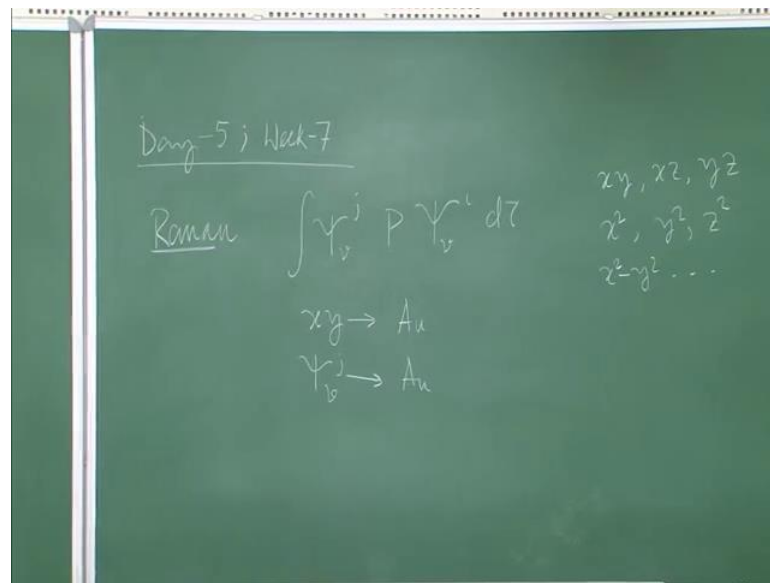 Day-5 ; Week-7
Raman ∫ψ_v^j P ψ_v^i dτ
xy → Au
ψ_v^j → Au
xy, xz, yz
x², y², z²
x²-y² ...